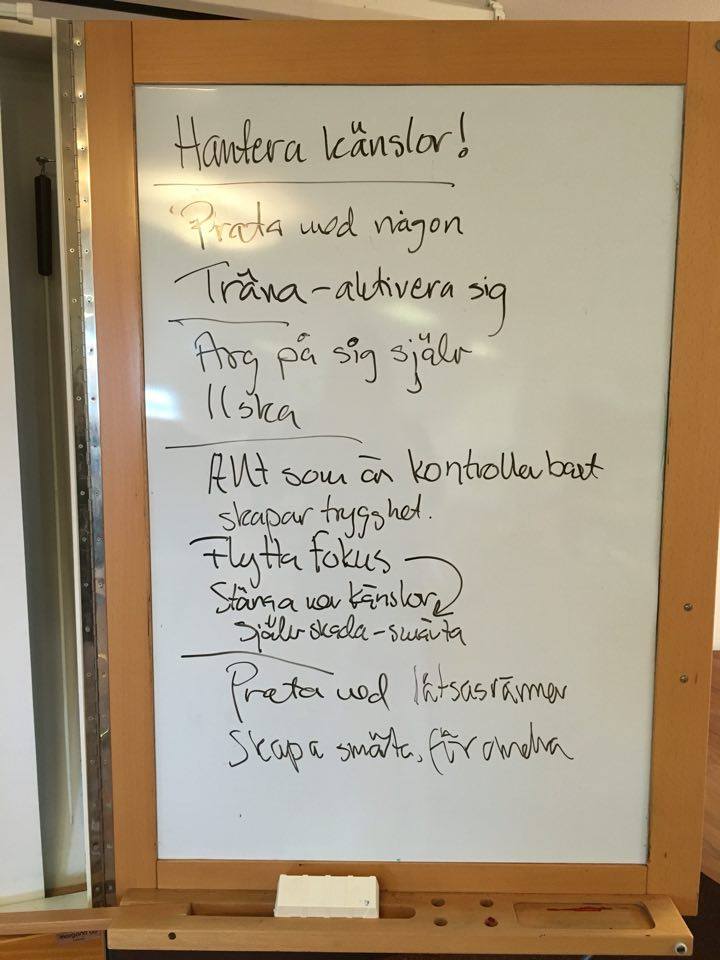 Hantera känslor!
Prata med någon
Träna - aktivera sig
Arg på sig själv
Ilska
Allt som är kontrollerbart
skapar trygghet.
Flytta fokus
Stänga ner känslor
Självskada - smärta
Prata med låtsasvänner
Skapa smärta, för andra